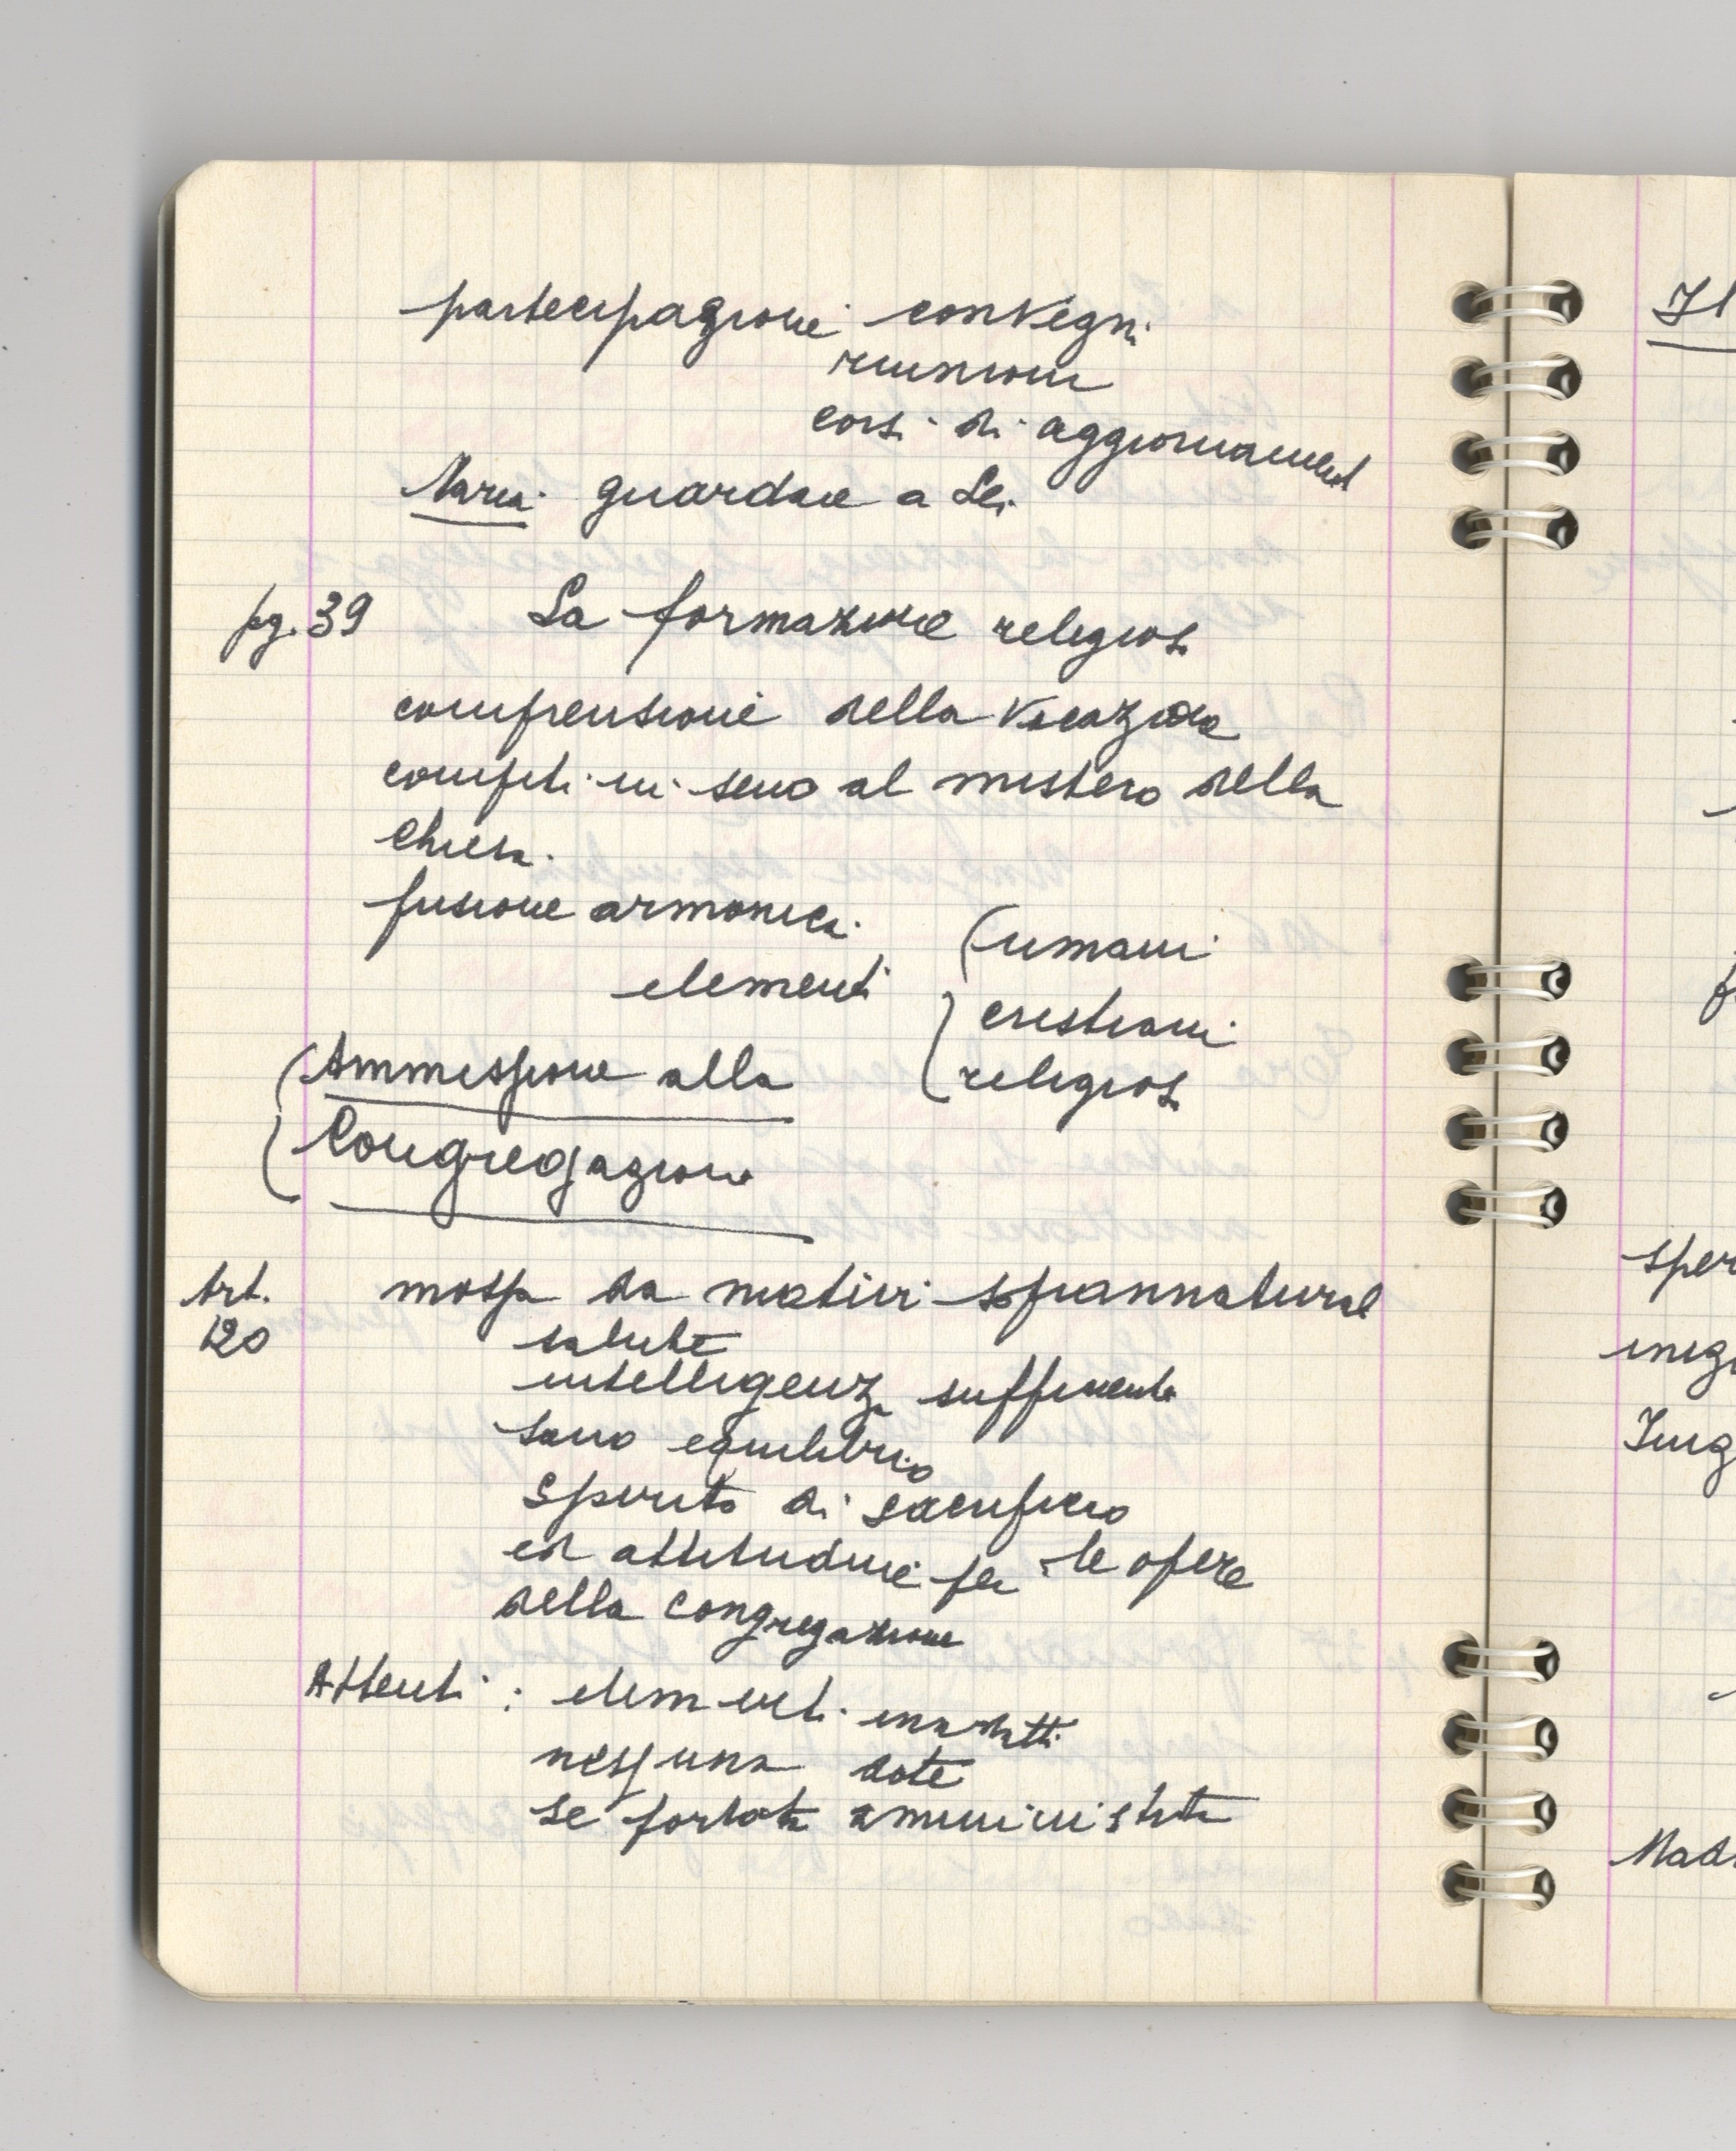 partecipazione convegni
riunioni
corsi di aggiornament
Maria guardare a Lei
pg. 39 La formazione religiosa
comprensione della vocazione
compiti in seno al mistero della
Chiesa.
fusione armonica
elementi
umani
cristiani
religiosi
Ammissione alla
Congregazione
Art. 120
mossa da motivi soprannatural
salute
intelligenza sufficiente
sano equilibrio
spirito di sacrificio
ed attitudine per le opere
della congregazione
Attenti : elementi inadatti
nessuna dote
se portata amministrata
Il
sper
Mad